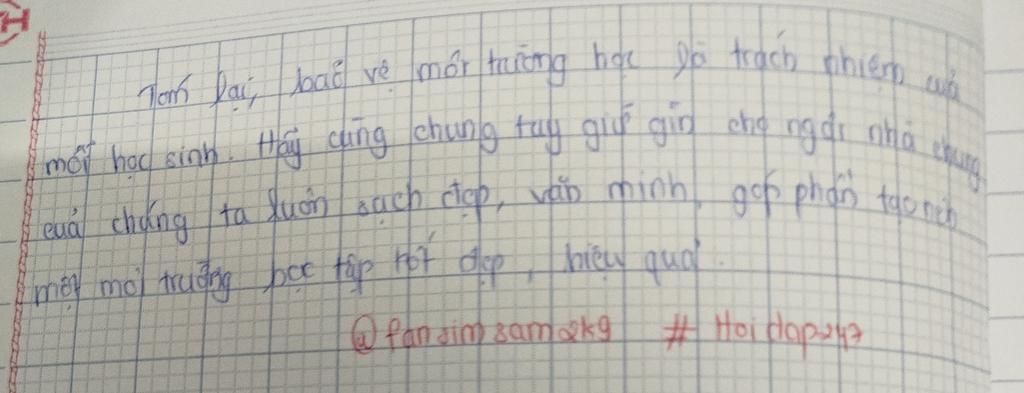 Tóm lại, bảo vệ môi trường học là trách nhiệm của
mỗi học sinh. Hãy cùng chung tay giữ gìn cho ngôi nhà chung
của chúng ta luôn sạch đẹp, văn minh, góp phần tạo nên
một môi trường học tập tốt đẹp, hiệu quả.
@fandimsamakg # Hoidap247